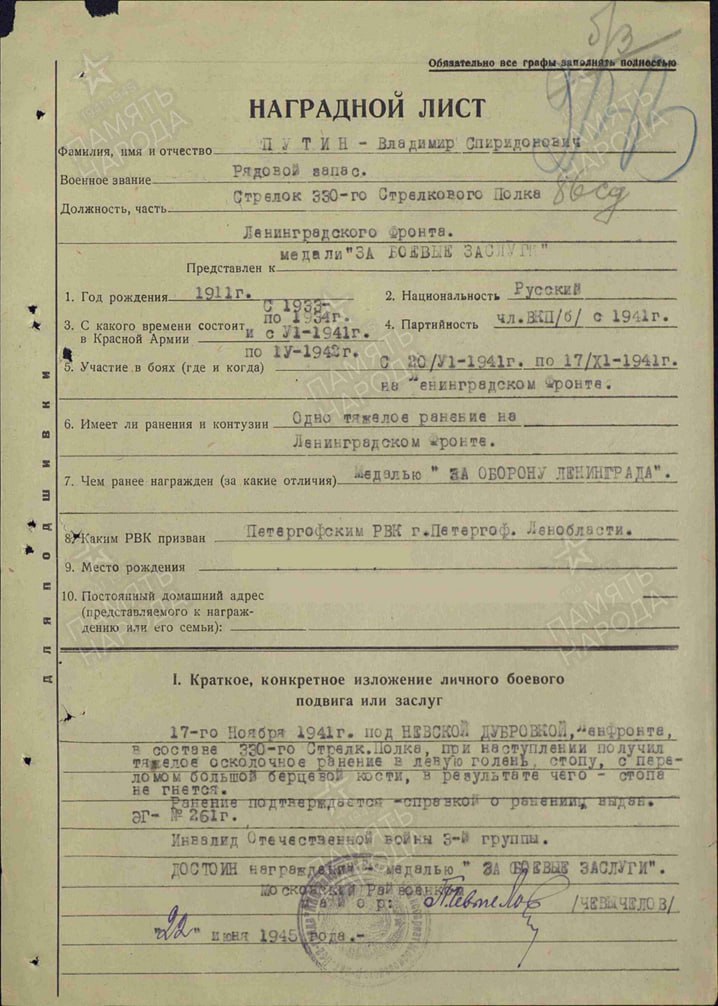 5/3
Обязательно все графы заполнять полностью
НАГРАДНОЙ ЛИСТ
Фамилия, имя и отчество ПУТИН - Владимир Спиридонович
Военное звание Рядовой запас.
Должность, часть Стрелок 330-го Стрелкового Полка 86 сд
Ленинградского Фронта.
Представлен к медали "ЗА БОЕВЫЕ ЗАСЛУГИ"
1. Год рождения 1911г. 2. Национальность Русский
3. С какого времени состоит в Красной Армии С 1933- по 1934г. и с У1-1941г. по 1У-1942г. 4. Партийность чл.ВКП/б/ с 1941г.
5. Участие в боях (где и когда) С 20/У1-1941г. по 17/X1-1941г.
на Ленинградском Фронте.
6. Имеет ли ранения и контузии Одно тяжелое ранение на
Ленинградском Фронте.
7. Чем ранее награжден (за какие отличия) Медалью " ЗА ОБОРОНУ ЛЕНИНГРАДА".
8. Каким РВК призван Петергофским РВК г.Петергоф. Ленобласти.
9. Место рождения
10. Постоянный домашний адрес
(представляемого к награж-
дению или его семьи):
Для подшивки
I. Краткое, конкретное изложение личного боевого
подвига или заслуг
17-го Ноября 1941г. под НЕВСКОЙ ДУБРОВКОЙ, Ленфронта,
в составе 330-го Стрелк.Полка, при наступлении получил
тяжелое осколочное ранение в левую голень, стопу, с пере-
ломом большой берцевой кости, в результате чего - стопа
не гнется.
Ранение подтверждается -справкой о ранении, выдан.
ЭГ- № 261г.
Инвалид Отечественной войны 3-й группы.
ДОСТОИН награждения - медалью " ЗА БОЕВЫЕ ЗАСЛУГИ".
Московский Райвоенком
майор: /ЧЕВЫЧЕЛОВ/
"22" июня 1945 года.-
ПАМЯТЬ НАРОДА